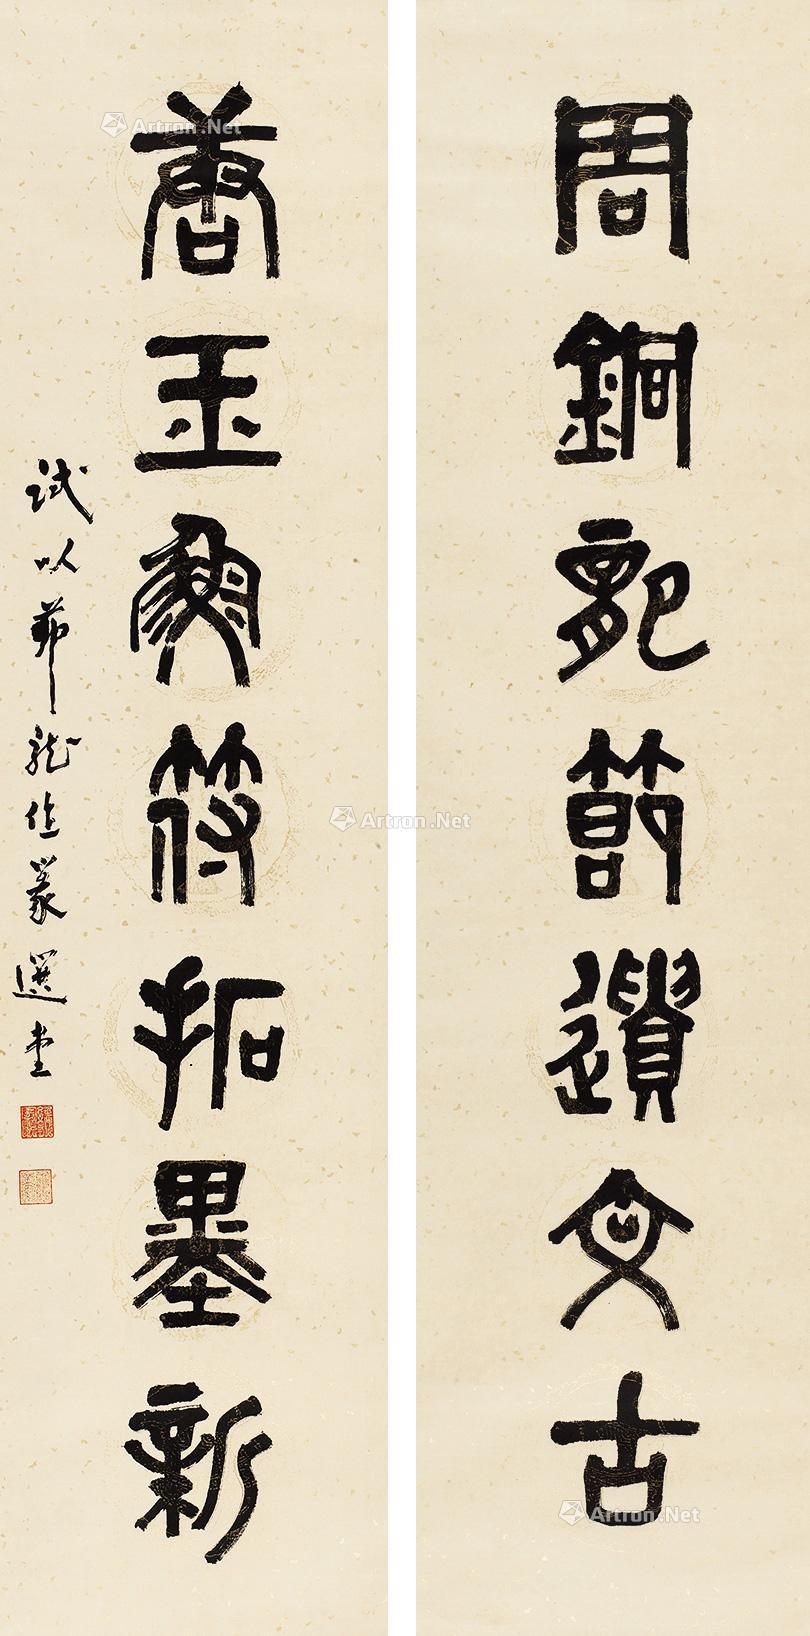 周銅㓝節遺文古
唐玉魚符拓墨新
試以茆龍作篆選堂
Artron.Net
Artron.Net
Artron.Net